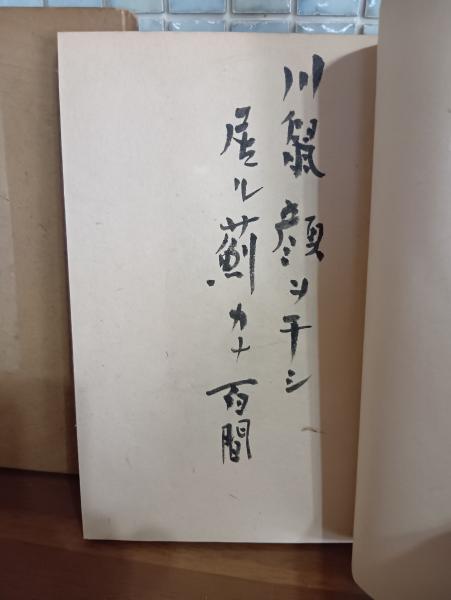 川鼠顔ヲ干シ
居ル薊カナ 百間